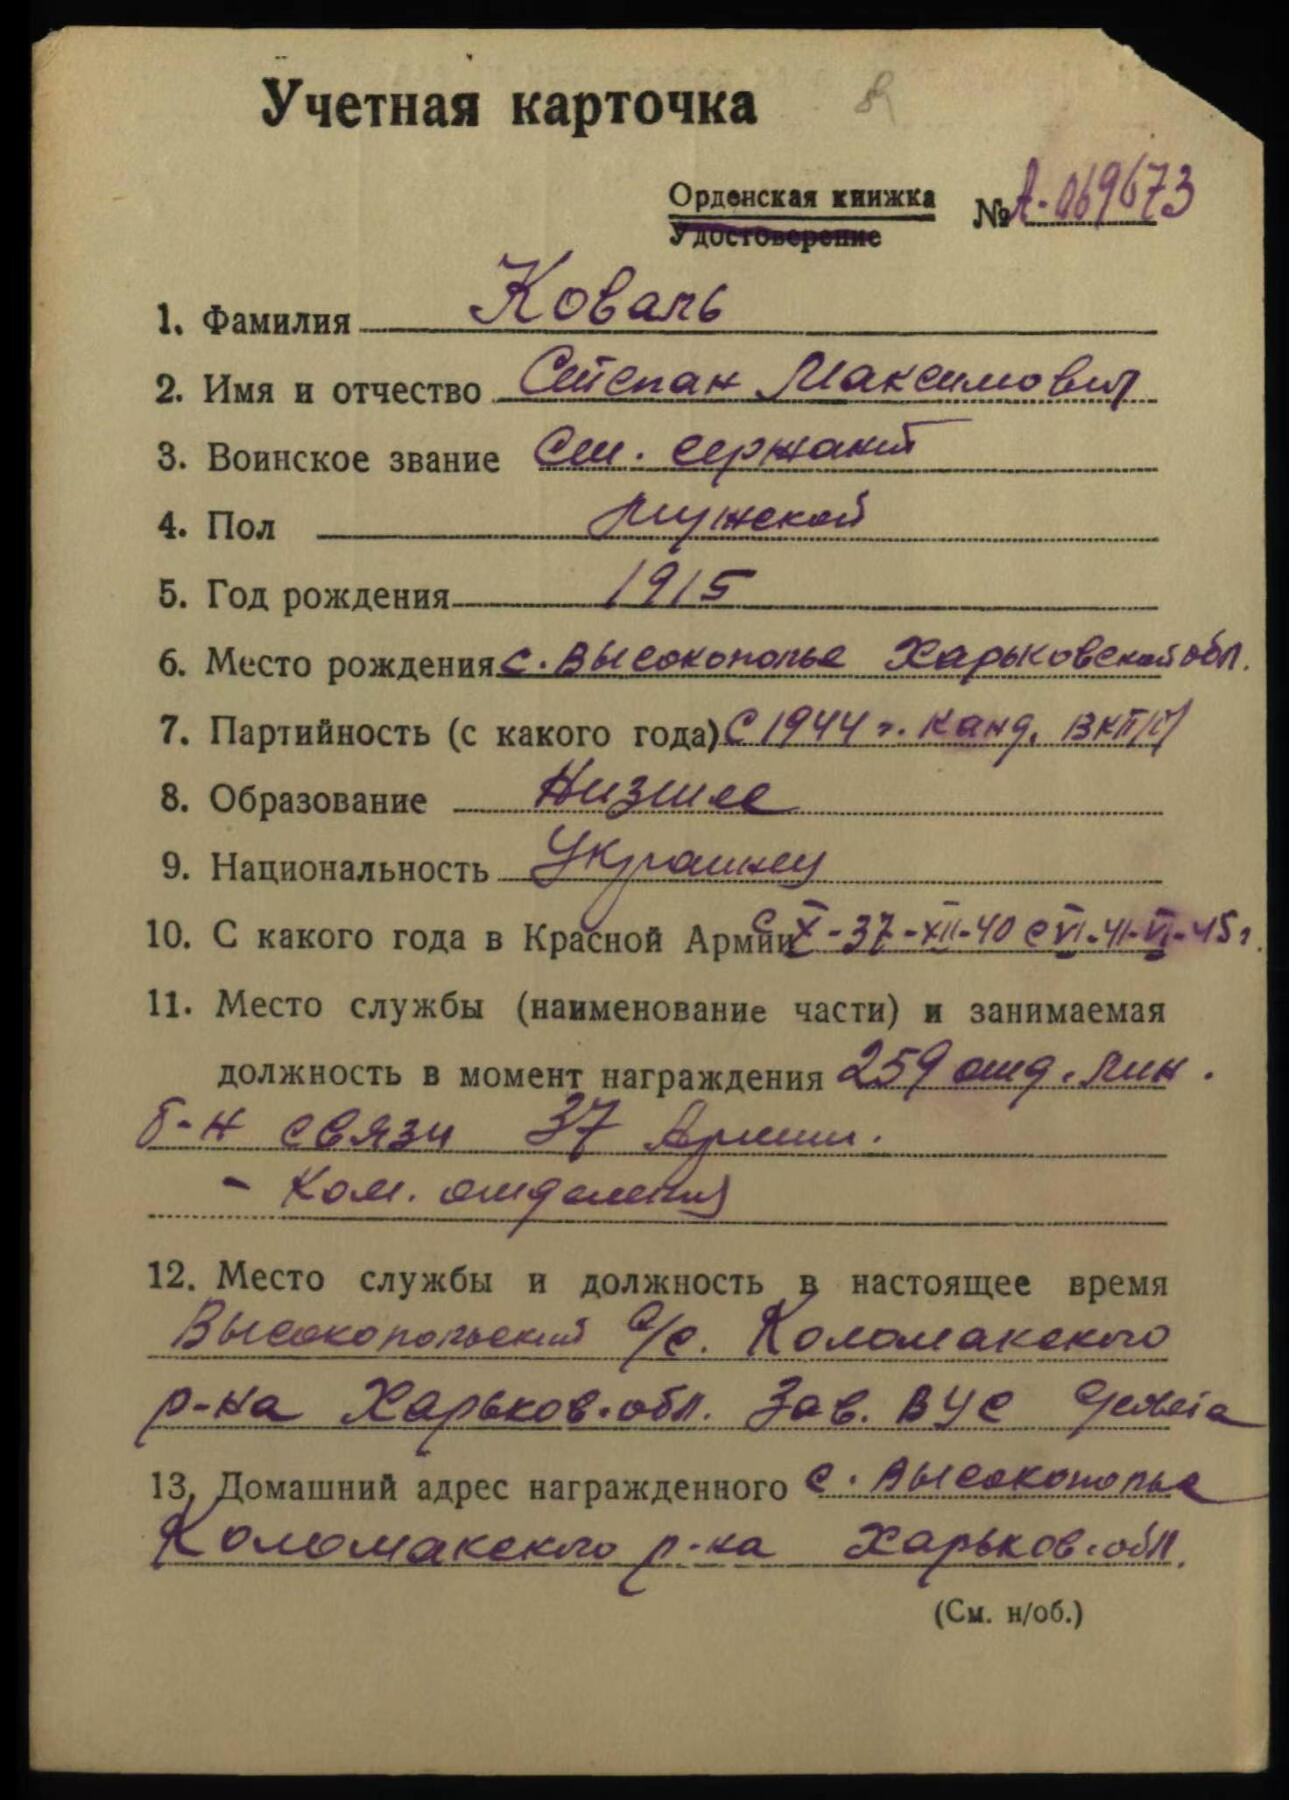 Учетная карточка
Орденская книжка
Удостоверение
№ А-069673
1. Фамилия Коваль
2. Имя и отчество Степан Максимович
3. Воинское звание Ст. сержант
4. Пол мужской
5. Год рождения 1915
6. Место рождения с. Высокополье Харьковской обл.
7. Партийность (с какого года) С 1944 г. канд. ВКП/б/
8. Образование Низшее
9. Национальность Украинец
10. С какого года в Красной Армии с X-37-XII-40 с VI-41-VI-45 г.
11. Место службы (наименование части) и занимаемая
должность в момент награждения 259 отд. лин.
б-н связи 37 Армии.
- Ком. отделения
12. Место службы и должность в настоящее время
Высокопольский с/с. Коломакского
р-на Харьков. обл. Зав. ВУС
13. Домашний адрес награжденного с. Высокополье
Коломакского р-на Харьков. обл.
(См. н/об.)